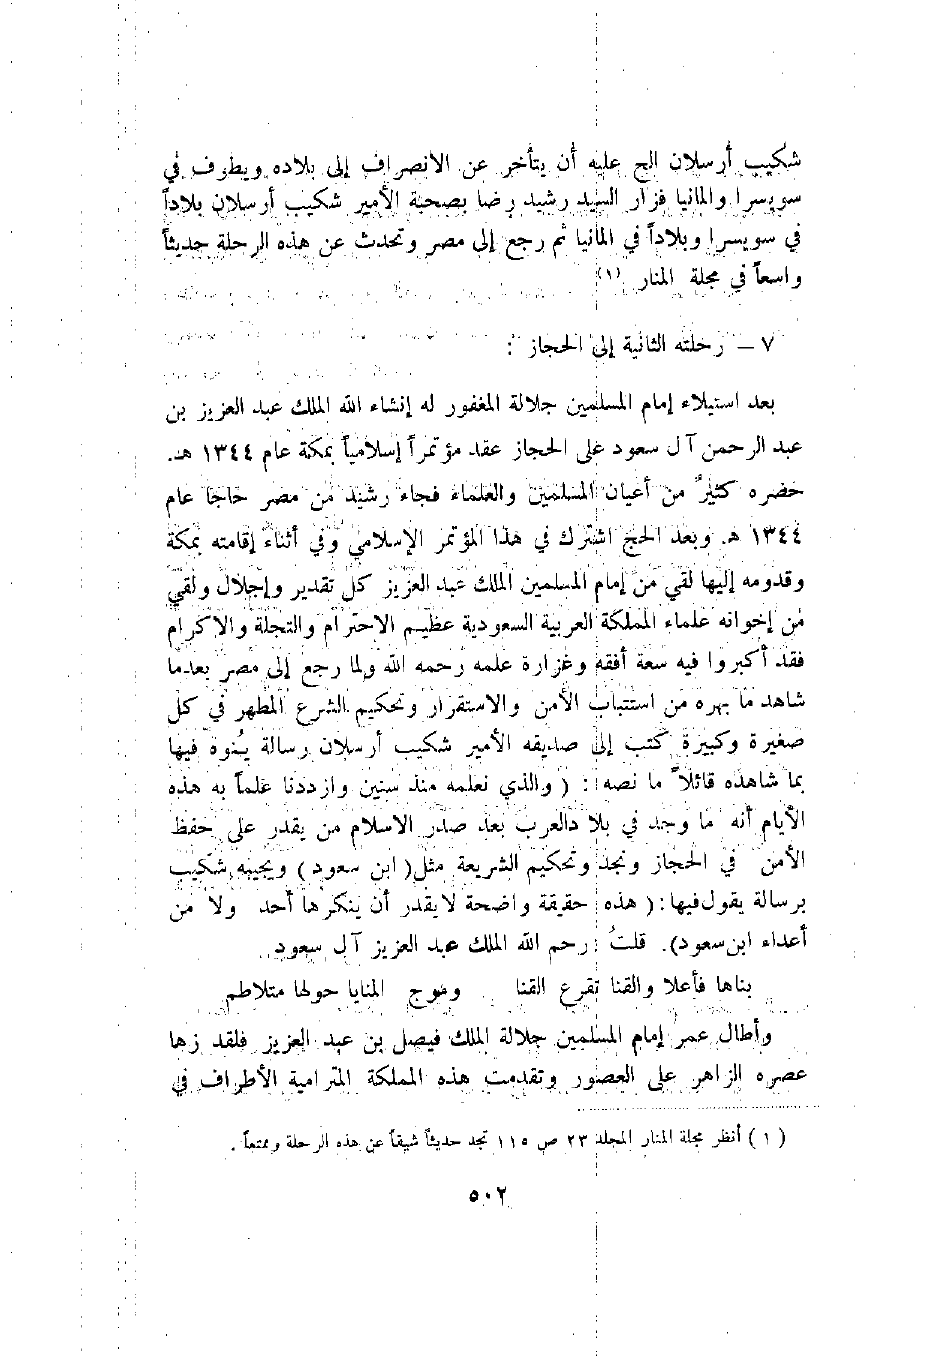 شكيب أرسلان الح عليه أن يتأخر عن الانصراف إلى بلاده ويطوف في
سويسرا والمانيا فزار السيد رشيد رضا بصحبة الأمير شكيب أرسلان بلاداً
في سويسرا وبلاداً في المانيا ثم رجع إلى مصر وتحدث عن هذه الرحلة حديثاً
واسعاً في مجلة المنار (١)
٧ – رحلته الثانية إلى الحجاز :
بعد استيلاء إمام المسلمين جلالة المغفور له إنشاء الله الملك عبد العزيز بن
عبد الرحمن آل سعود على الحجاز عقد مؤتمراً إسلامياً بمكة عام ١٣٤٤ هـ.
حضره كثيرٌ من أعيان المسلمين والعلماء فجاء رشيد من مصر حاجا عام
١٣٤٤ هـ. وبعد الحج اشترك في هذا المؤتمر الإسلامي وفي أثناء إقامته بمكة
وقدومه إليها لقي من إمام المسلمين الملك عبد العزيز كل تقدير وإجلال ولقي
من إخوانه علماء المملكة العربية السعودية عظيم الاحترام والتجلة والاكرام
فقد أكبروا فيه سعة أفقه وغزارة علمه رحمه الله ولما رجع إلى مصر بعدما
شاهد ما بهره من استتباب الأمن والاستقرار وتحكيم الشرع المطهر في كل
صغيرة وكبيرة كتب إلى صديقه الأمير شكيب أرسلان رسالة ينوه فيها
بما شاهده قائلاً ما نصه : ( والذي نعلمه منذ سنين وازددنا علماً به هذه
الأيام أنه ما وجد في بلا دالعرب بعد صدر الاسلام من يقدر على حفظ
الأمن في الحجاز ونجد وتحكيم الشريعة مثل( ابن سعود ) ويجيبه شكيب
برسالة يقول فيها : ( هذه حقيقة واضحة لايقدر أن ينكرها أحد ولا من
أعداء ابن سعود). قلتُ : رحم الله الملك عبد العزيز آل سعود.
بناها فأعلا والقنا تقرع القنا وموج المنايا حولها متلاطم
وأطال عمر إمام المسلمين جلالة الملك فيصل بن عبد العزيز فلقد زها
عصره الزاهر على العصور وتقدمت هذه المملكة المترامية الأطراف في
( ١ ) أنظر مجلة المنار المجلد ٢٣ ص ١١٥ تجد حديثاً شيقاً عن هذه الرحلة وممتعاً .
٥٠٢